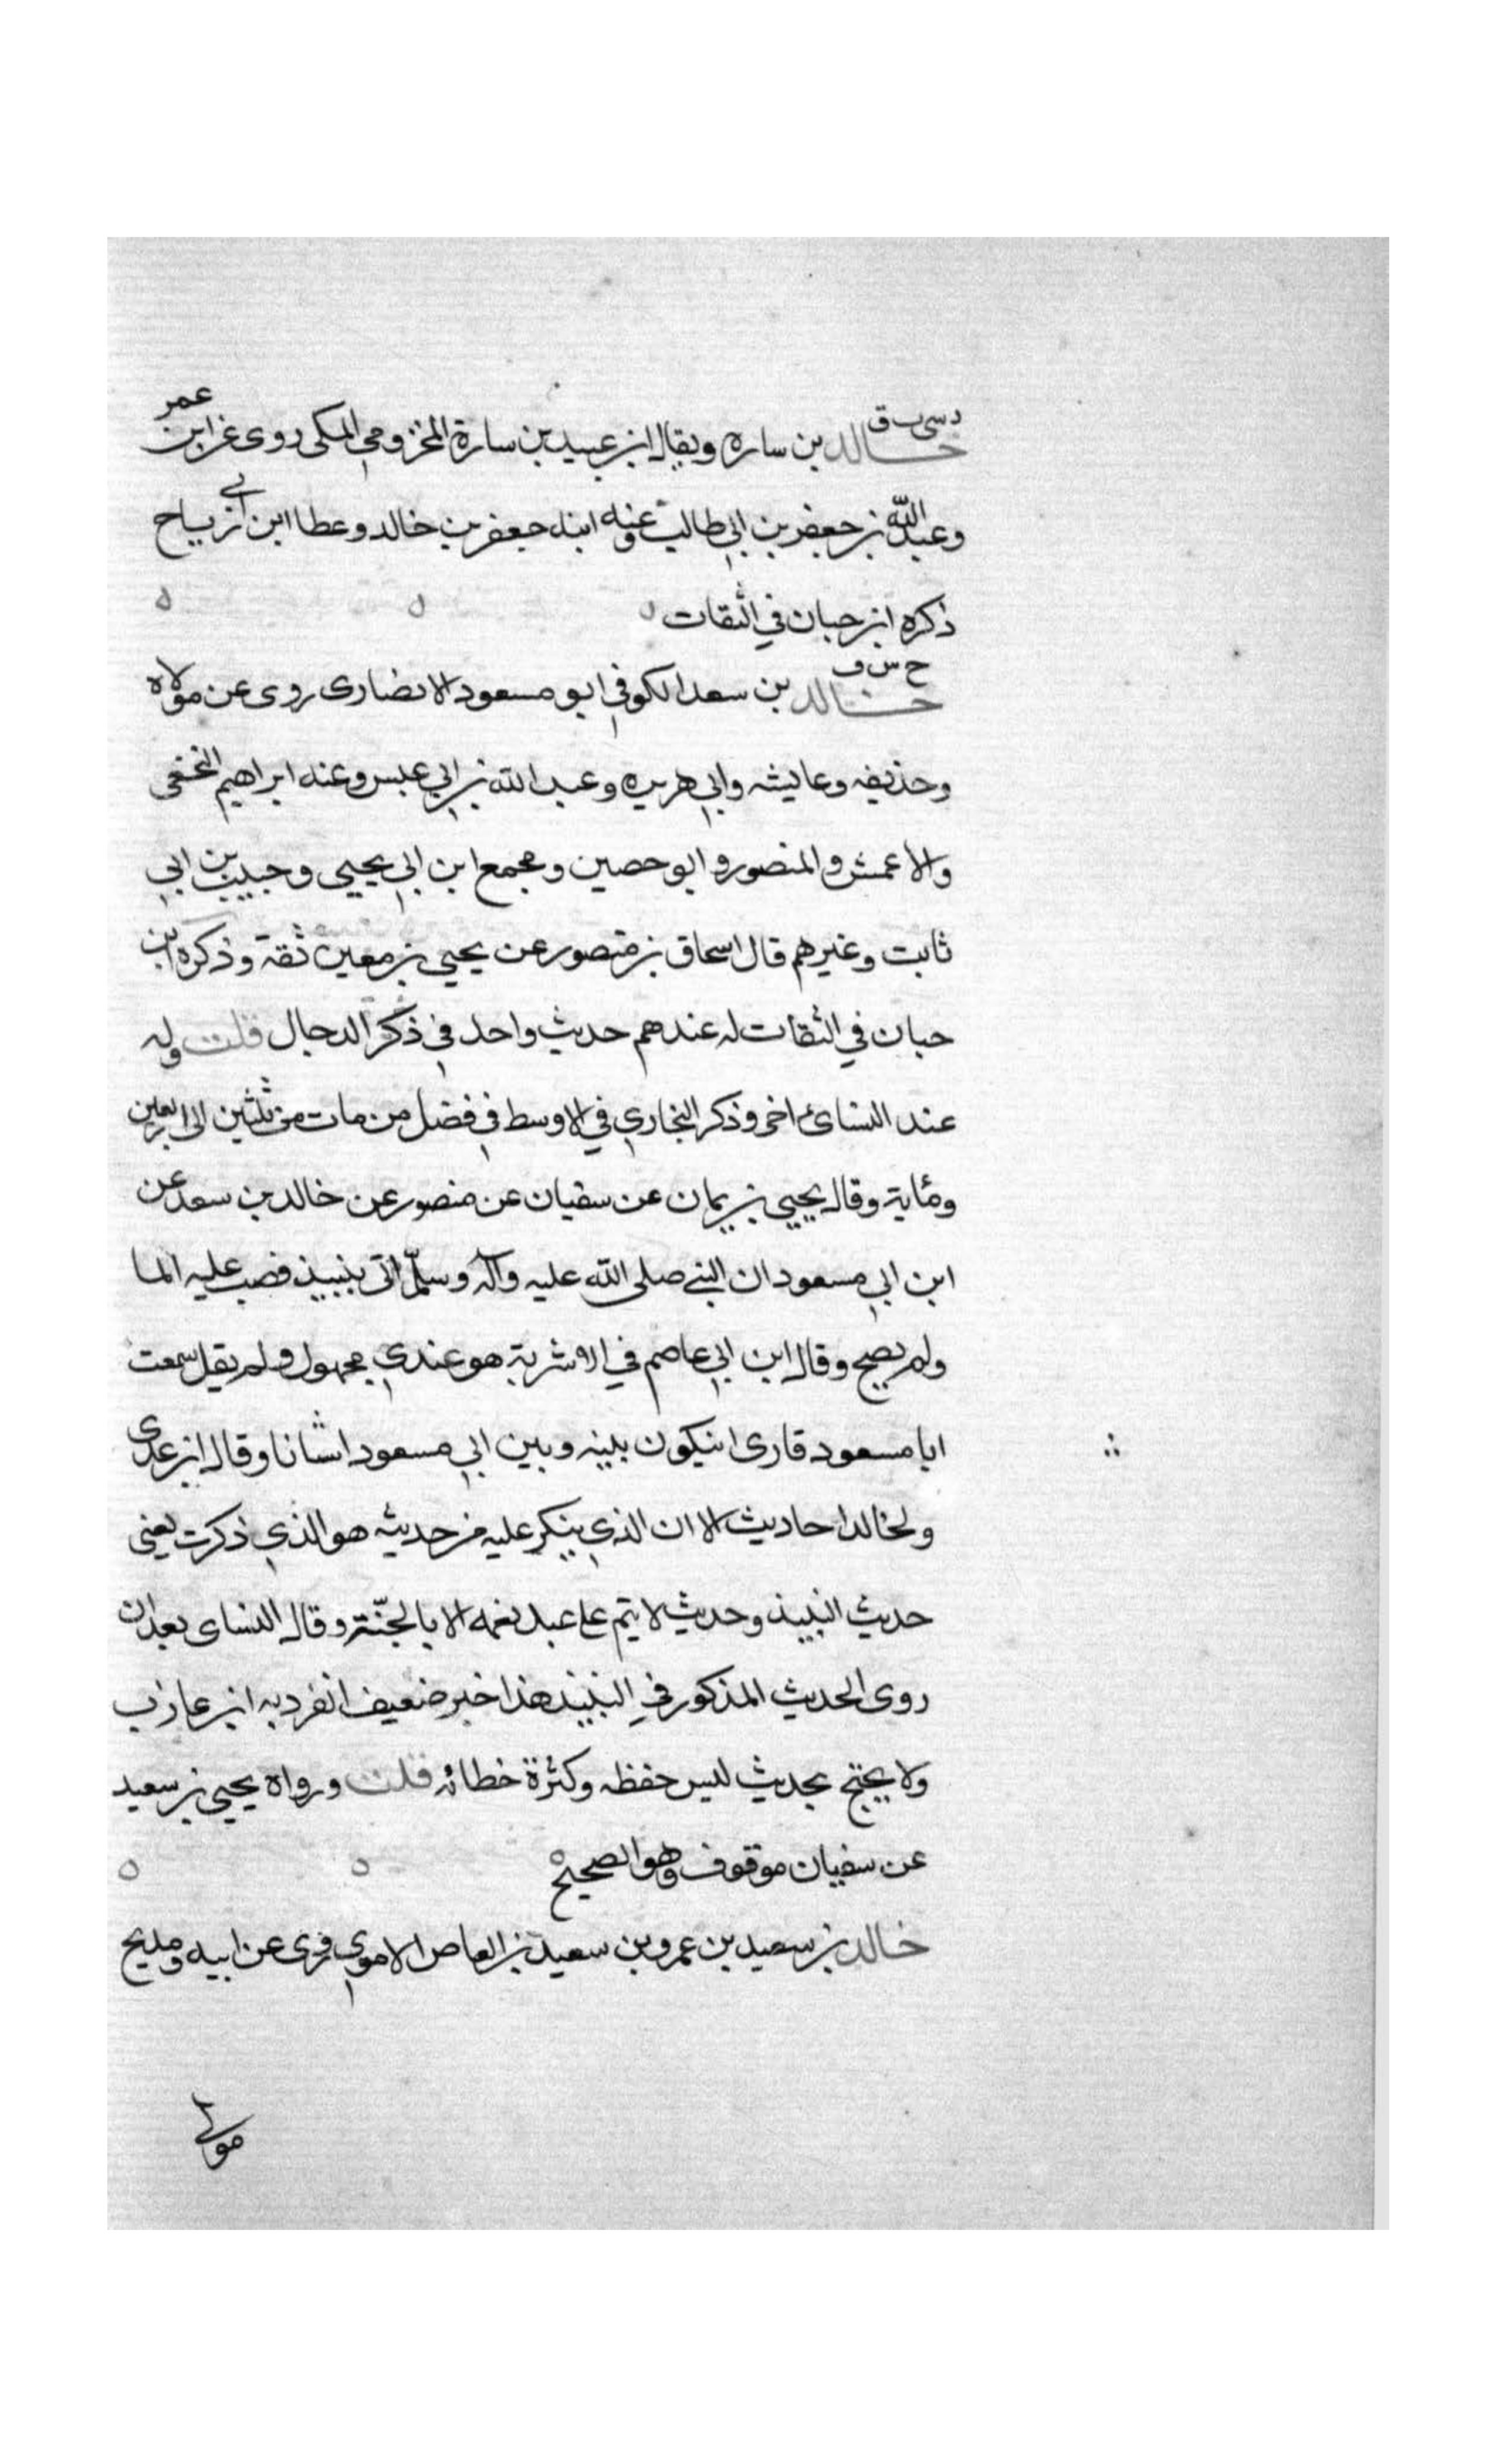 د سى ت ق
خالد بن ساره ويقال ابن عبيد بن سارة المخزومي المكى روى عن ابن عمر
وعبد الله بن جعفر بن ابي طالب وعنه ابنه جعفر بن خالد وعطا ابن ابي رباح
ذكره ابن حبان في الثقات
خ س ق
خالد بن سعد الكوفي ابو مسعود الانصارى روى عن مولاه
وحذيفه وعايشه وابي هريره وعبد الله بن ابي عبس وعنه ابراهيم النخعى
والاعمش والمنصور وابو حصين ومجمع ابن ابي يحيى وحبيب بن ابي
ثابت وغيرهم قال اسحاق بن منصور عن يحيى بن معين ثقة وذكره ابن
حبان في الثقات له عندهم حديث واحد في ذكر الدجال قلت وله
عند النسائ اخر وذكر البخاري في الاوسط في فضل من مات من ثلثين الى اربعين
ومأية وقال يحيى بن يمان عن سفيان عن منصور عن خالد بن سعد عن
ابن ابي مسعود ان النبي صلى الله عليه وآله وسلّم اتى بنبيذ فصب عليه الما
ولم يصح وقال ابن ابي عاصم في الاشربة هو عندي مجهول ولم يقل سمعت
ابا مسعود قارى انيكون بينه وبين ابي مسعود اشانا وقال ابن عدى
ولخالد احاديث الا ان الذي ينكر عليه من حديثه هو الذي ذكرت يعنى
حديث النبيذ وحديث لا يتم على عبد نعمه الا بالجنّة وقال النساى بعد ان
روى الحديث المذكور في النبيذ هذا خبر ضعيف انفرد به ابن عازب
ولا يحتج بحديث ليس حفظه وكثرة خطائه قلت ورواه يحيى بن سعيد
عن سفيان موقوف وهو الصحيح
خالد بن سعيد بن عمرو بن سعيد بن العاص الاموي روى عن ابيه ومديح
مولى